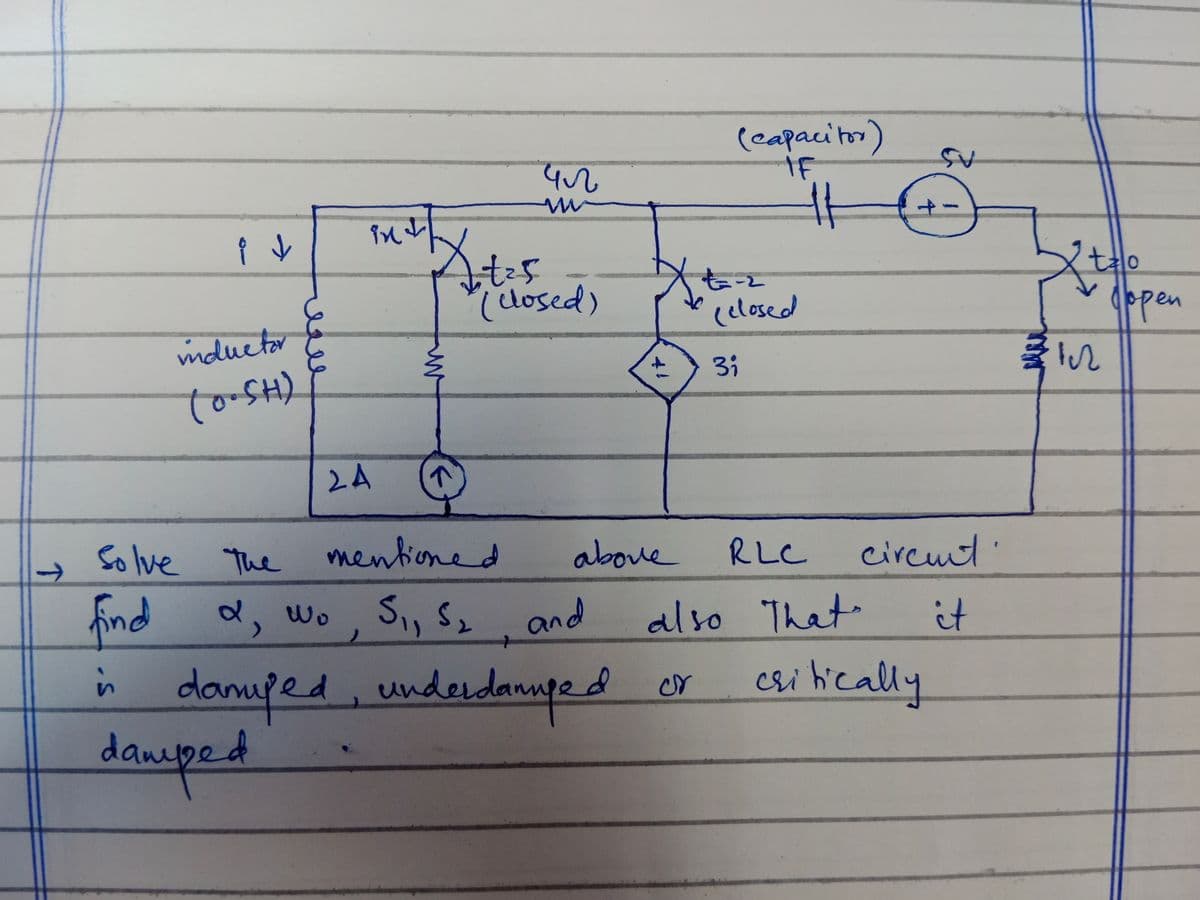 (capacitor)
1F
5V
4Ω
+ -
i ↓
ix ↓
t=5
(closed)
t=-2
(closed
t=0
open
inductor
(0.5H)
+ -
3i
1Ω
2A
↑
→ Solve The mentioned above RLC circuit.
find α, Wo, S1, S2, and also That it
in damped, underdamped or critically
damped.